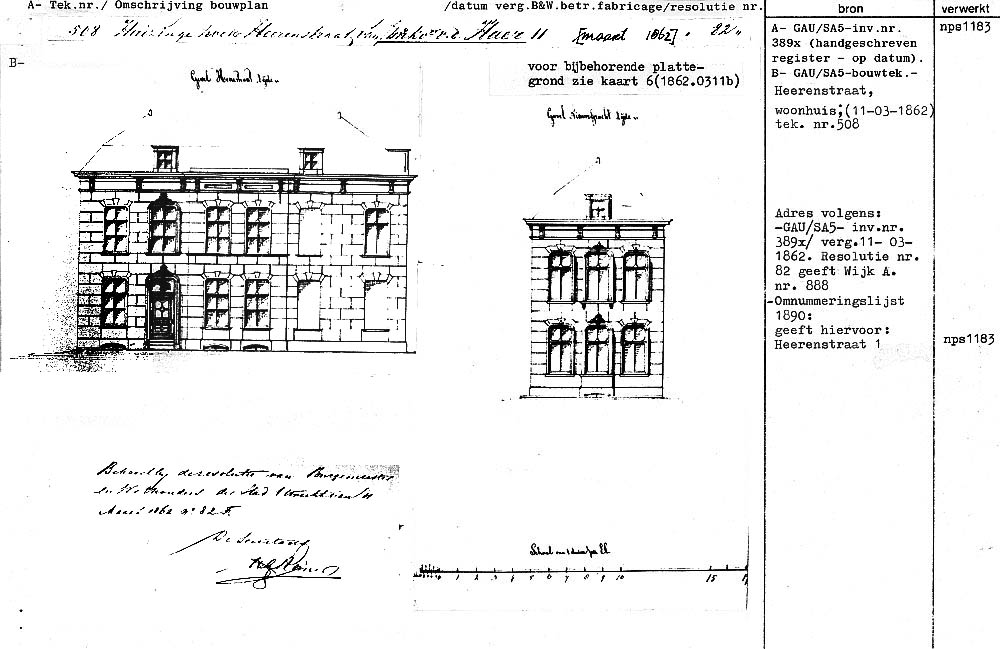 A- Tek.nr./ Omschrijving bouwplan
/datum verg.B&W.betr.fabricage/resolutie nr.
bron
verwerkt
508
Heerenstraat, v.d. Haer 11 [maart 1862] 82
B-
voor bijbehorende platte-
grond zie kaart 6(1862.0311b)
Gevel Heerestraat zijde
Gevel Nieuwegracht zijde
A- GAU/SA5-inv.nr.
389x (handgeschreven
register - op datum).
B- GAU/SA5-bouwtek.-
Heerenstraat,
woonhuis;(11-03-1862)
tek. nr.508
nps1183
Adres volgens:
-GAU/SA5- inv.nr.
389x/ verg.11- 03-
1862. Resolutie nr.
82 geeft Wijk A.
nr. 888
-Omnummeringslijst
1890:
geeft hiervoor:
Heerenstraat 1
nps1183
Behoort bij de resolutie van Burgemeester
en Wethouders der Stad Utrecht van 11
Maart 1862 nº 82 F.
De Secretaris
1 2 3 4 5 6 7 8 9 10 15